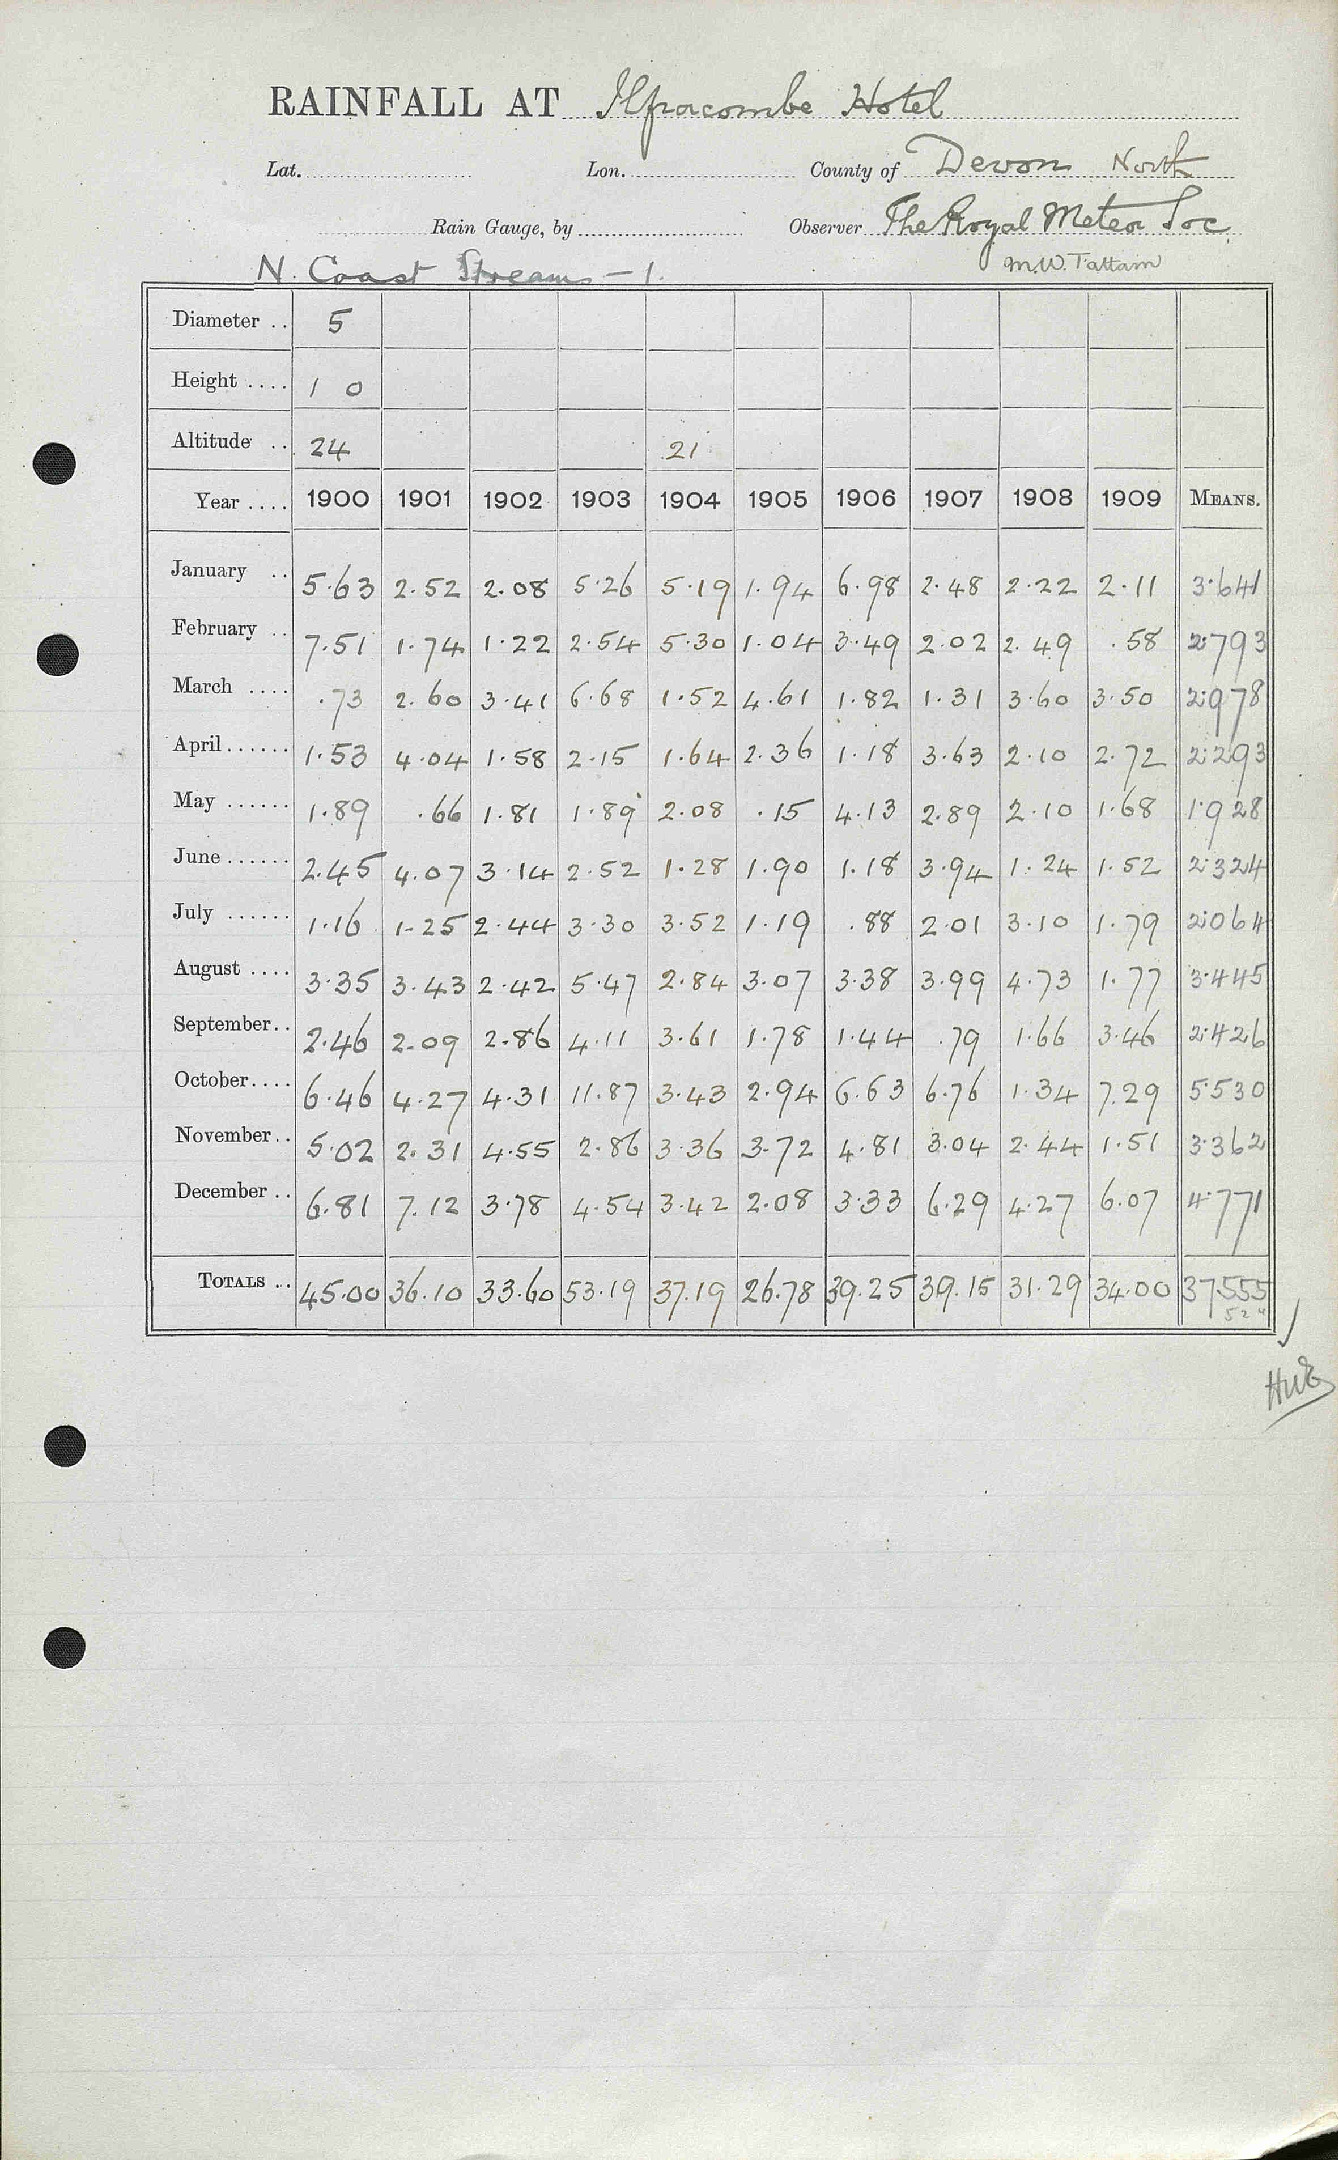 RAINFALL AT Ilfracombe Hotel
Lat. Lon. County of Devon North
Rain Gauge, by Observer The Royal Meteor Soc.
M.W. Tattam
N. Coast Streams - 1.
Diameter .. 5
Height .... 1 0
Altitude .. 24 21
Year .... 1900 1901 1902 1903 1904 1905 1906 1907 1908 1909 MEANS.
January .. 5.63 2.52 2.08 5.26 5.19 1.94 6.98 2.48 2.22 2.11 3.641
February .. 7.51 1.74 1.22 2.54 5.30 1.04 3.49 2.02 2.49 .58 2.793
March .... .73 2.60 3.41 6.68 1.52 4.61 1.82 1.31 3.60 3.50 2.978
April...... 1.53 4.04 1.58 2.15 1.64 2.36 1.18 3.63 2.10 2.72 2.293
May ...... 1.89 .66 1.81 1.89 2.08 .15 4.13 2.89 2.10 1.68 1.928
June ...... 2.45 4.07 3.14 2.52 1.28 1.90 1.18 3.94 1.24 1.52 2.324
July ...... 1.16 1.25 2.44 3.30 3.52 1.19 .88 2.01 3.10 1.79 2.064
August .... 3.35 3.43 2.42 5.47 2.84 3.07 3.38 3.99 4.73 1.77 3.445
September.. 2.46 2.09 2.86 4.11 3.61 1.78 1.44 .79 1.66 3.46 2.426
October.... 6.46 4.27 4.31 11.87 3.43 2.94 6.63 6.76 1.34 7.29 5.530
November.. 5.02 2.31 4.55 2.86 3.36 3.72 4.81 3.04 2.44 1.51 3.362
December .. 6.81 7.12 3.78 4.54 3.42 2.08 3.33 6.29 4.27 6.07 4.771
TOTALS .. 45.00 36.10 33.60 53.19 37.19 26.78 39.25 39.15 31.29 34.00 37.555